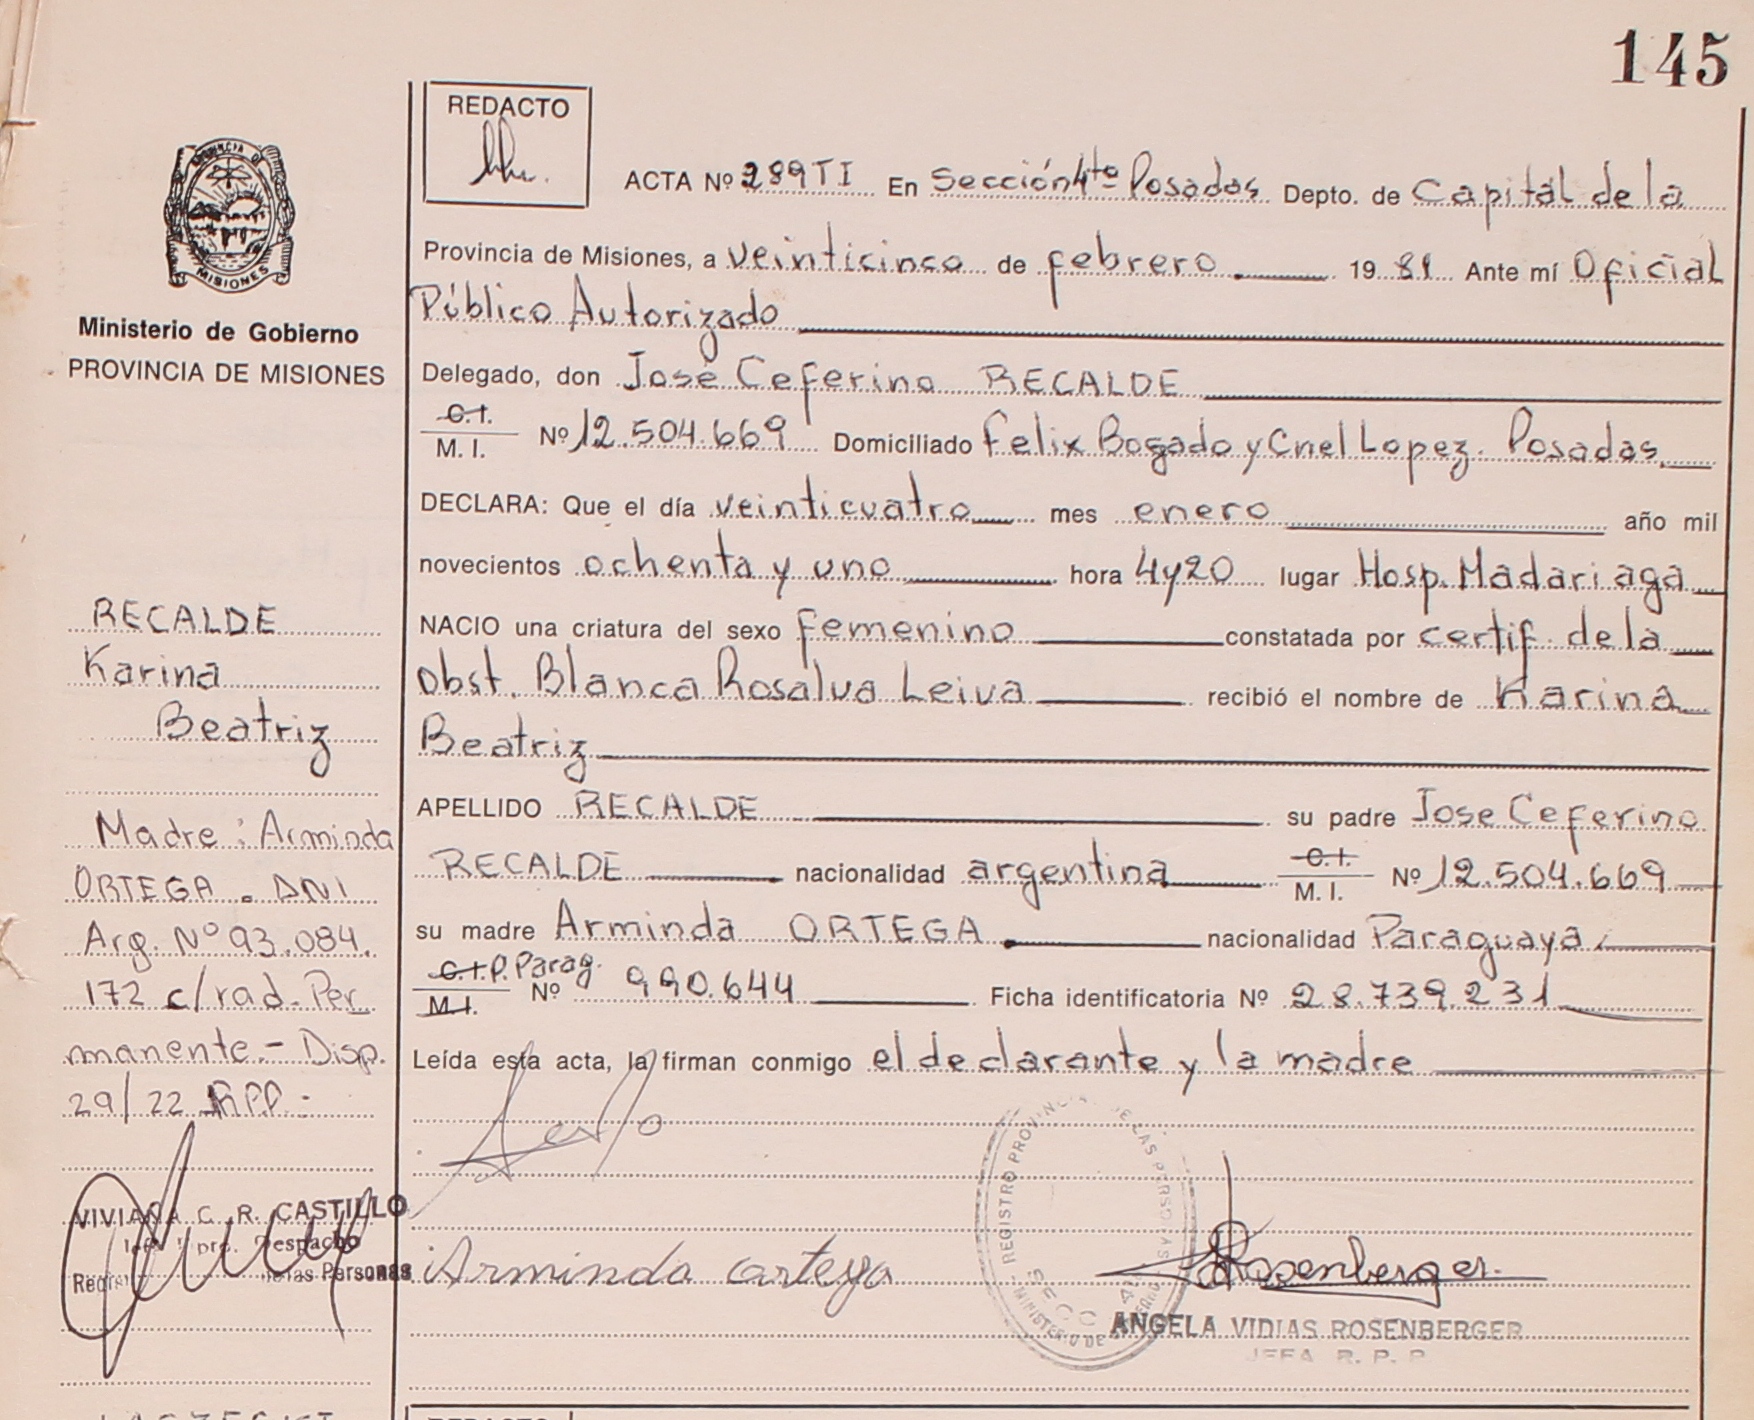 145
REDACTO
ACTA Nº 289TI En Sección 4to Posadas Depto. de Capital de la
Provincia de Misiones, a veinticinco de febrero 19 81 Ante mí Oficial
Público Autorizado
Delegado, don José Ceferino RECALDE
C.I.
M. I. Nº 12.504.669 Domiciliado Felix Bogado y Cnel Lopez. Posadas
DECLARA: Que el día veinticuatro mes enero año mil
novecientos ochenta y uno hora 4y20 lugar Hosp. Madariaga
NACIO una criatura del sexo femenino constatada por certif. de la
Obst. Blanca Rosalva Leiva recibió el nombre de Karina
Beatriz
APELLIDO RECALDE su padre Jose Ceferino
RECALDE nacionalidad argentina C.I. M. I. Nº 12.504.669
su madre Arminda ORTEGA nacionalidad Paraguaya
C.I. P. Parag.
M.I. Nº 990.644 Ficha identificatoria Nº 28.739.231
Leída esta acta, la firman conmigo el declarante y la madre
Arminda ortega
Rosenberger
ANGELA VIDIAS ROSENBERGER
JEFA R. P. P
REGISTRO PROVINCIAL DE LAS PERSONAS
MINISTERIO DE
SECC 4
PROVINCIA DE
MISIONES
Ministerio de Gobierno
PROVINCIA DE MISIONES
RECALDE
Karina
Beatriz
Madre: Arminda
ORTEGA. DNI
Arg. Nº 93.084.
172 c/rad. Per
manente.- Disp.
29/22 RPP.-
VIVIANA C. R. CASTILLO
Despacho
las Personas
REDACTO